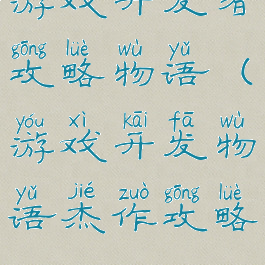 游戏开发者
gōng lüè wù yǔ
攻略物语（
yóu xì kāi fā wù
游戏开发物
yǔ jié zuò gōng lüè
语杰作攻略